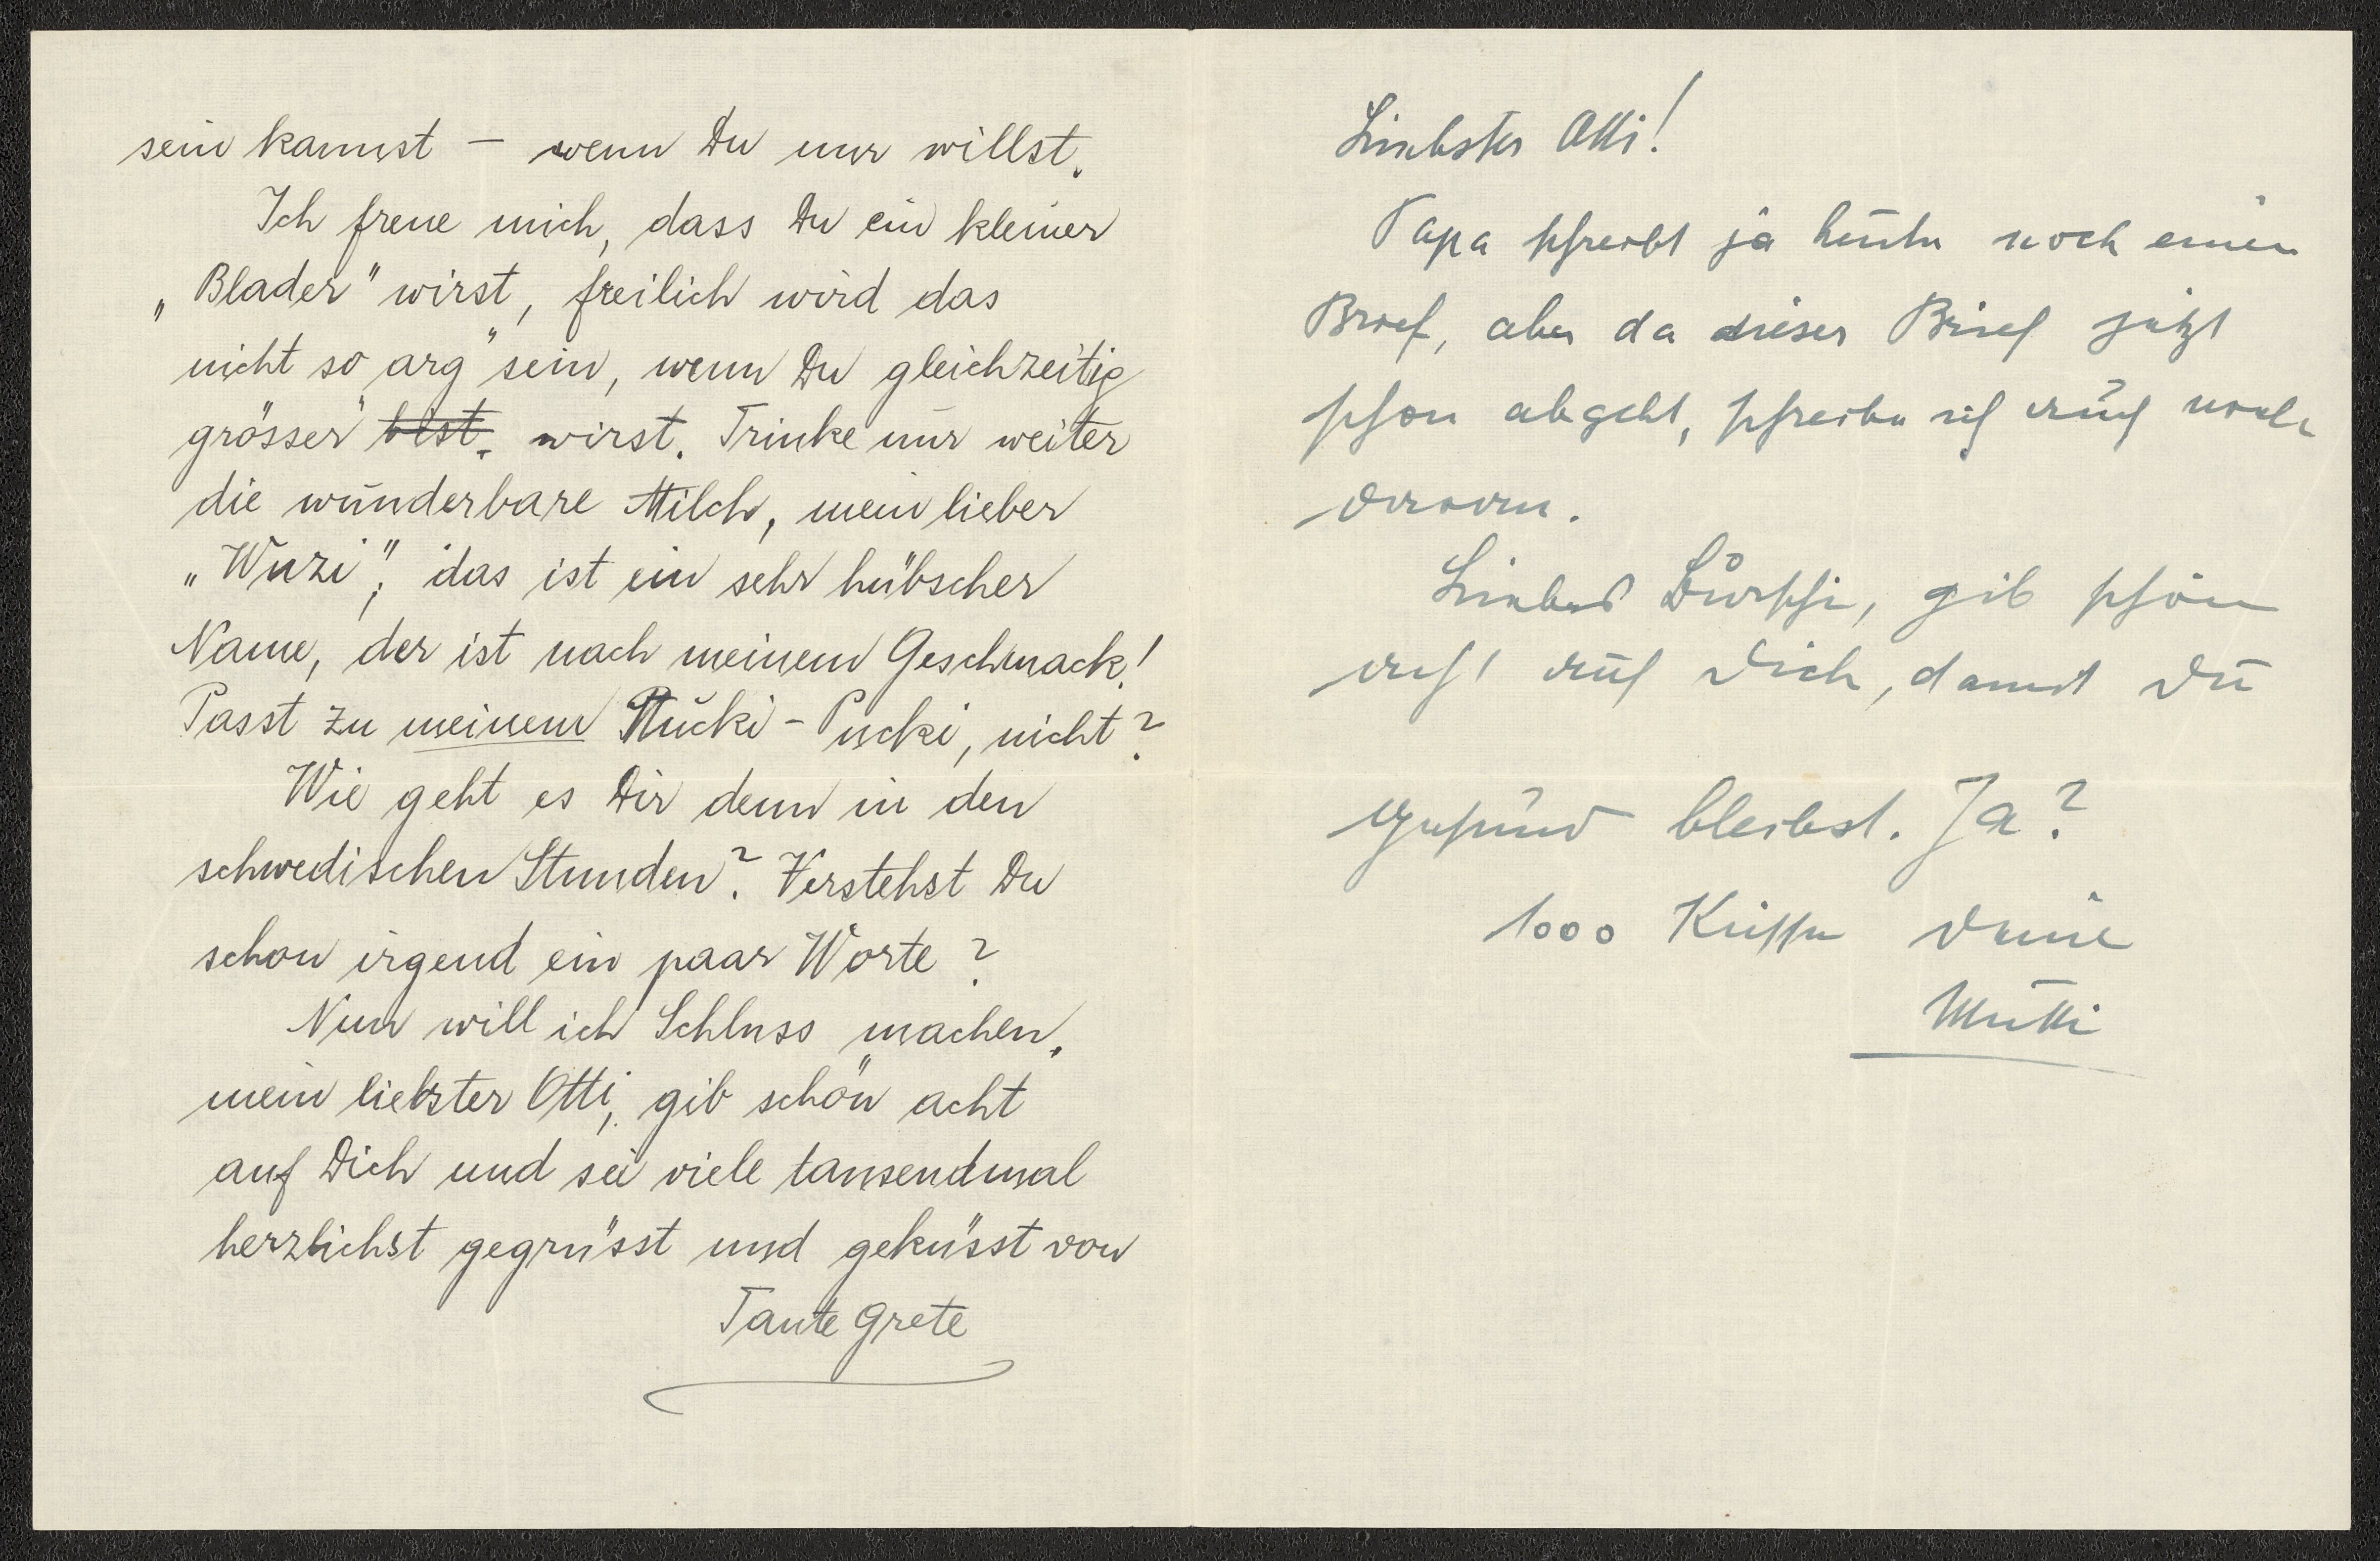 sein kannst – wenn Du nur willst.
Ich freue mich, dass Du ein kleiner
„Blader" wirst, freilich wird das
nicht so „arg" sein, wenn Du gleichzeitig
grösser bist. wirst. Trinke nur weiter
die wunderbare Milch, mein lieber
„Wuzi", das ist ein sehr hübscher
Name, der ist nach meinem Geschmack!
Passt zu meinem Stucki-Pucki, nicht?
Wie geht es Dir denn in den
schwedischen Stunden? Verstehst Du
schon irgend ein paar Worte?
Nun will ich Schluss machen,
mein liebster Otti, gib schön acht
auf Dich und sei viele tausendmal
herzlichst gegrüsst und geküsst von
Tante Grete
Liebster Otti!
Papa schreibt ja heute noch einen
Brief, aber da dieser Brief jetzt
schon abgeht, schreibe ich auch noch
daran.
Liebes Burschi, gib schön
acht auf Dich, damit Du
gesund bleibst. Ja?
1000 Küsse Deine
Mutti